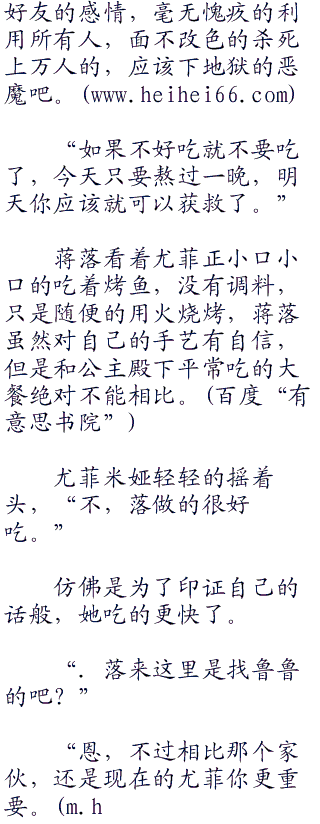 好友的感情，毫无愧疚的利
用所有人，面不改色的杀死
上万人的，应该下地狱的恶
魔吧。(www.heihei66.com)
“如果不好吃就不要吃
了，今天只要熬过一晚，明
天你应该就可以获救了。”
蒋落看着尤菲正小口小
口的吃着烤鱼，没有调料，
只是随便的用火烧烤，蒋落
虽然对自己的手艺有自信，
但是和公主殿下平常吃的大
餐绝对不能相比。(百度“有
意思书院”)
尤菲米娅轻轻的摇着
头，“不，落做的很好
吃。”
仿佛是为了印证自己的
话般，她吃的更快了。
“．落来这里是找鲁鲁
的吧？”
“恩，不过相比那个家
伙，还是现在的尤菲你更重
要。(m.h